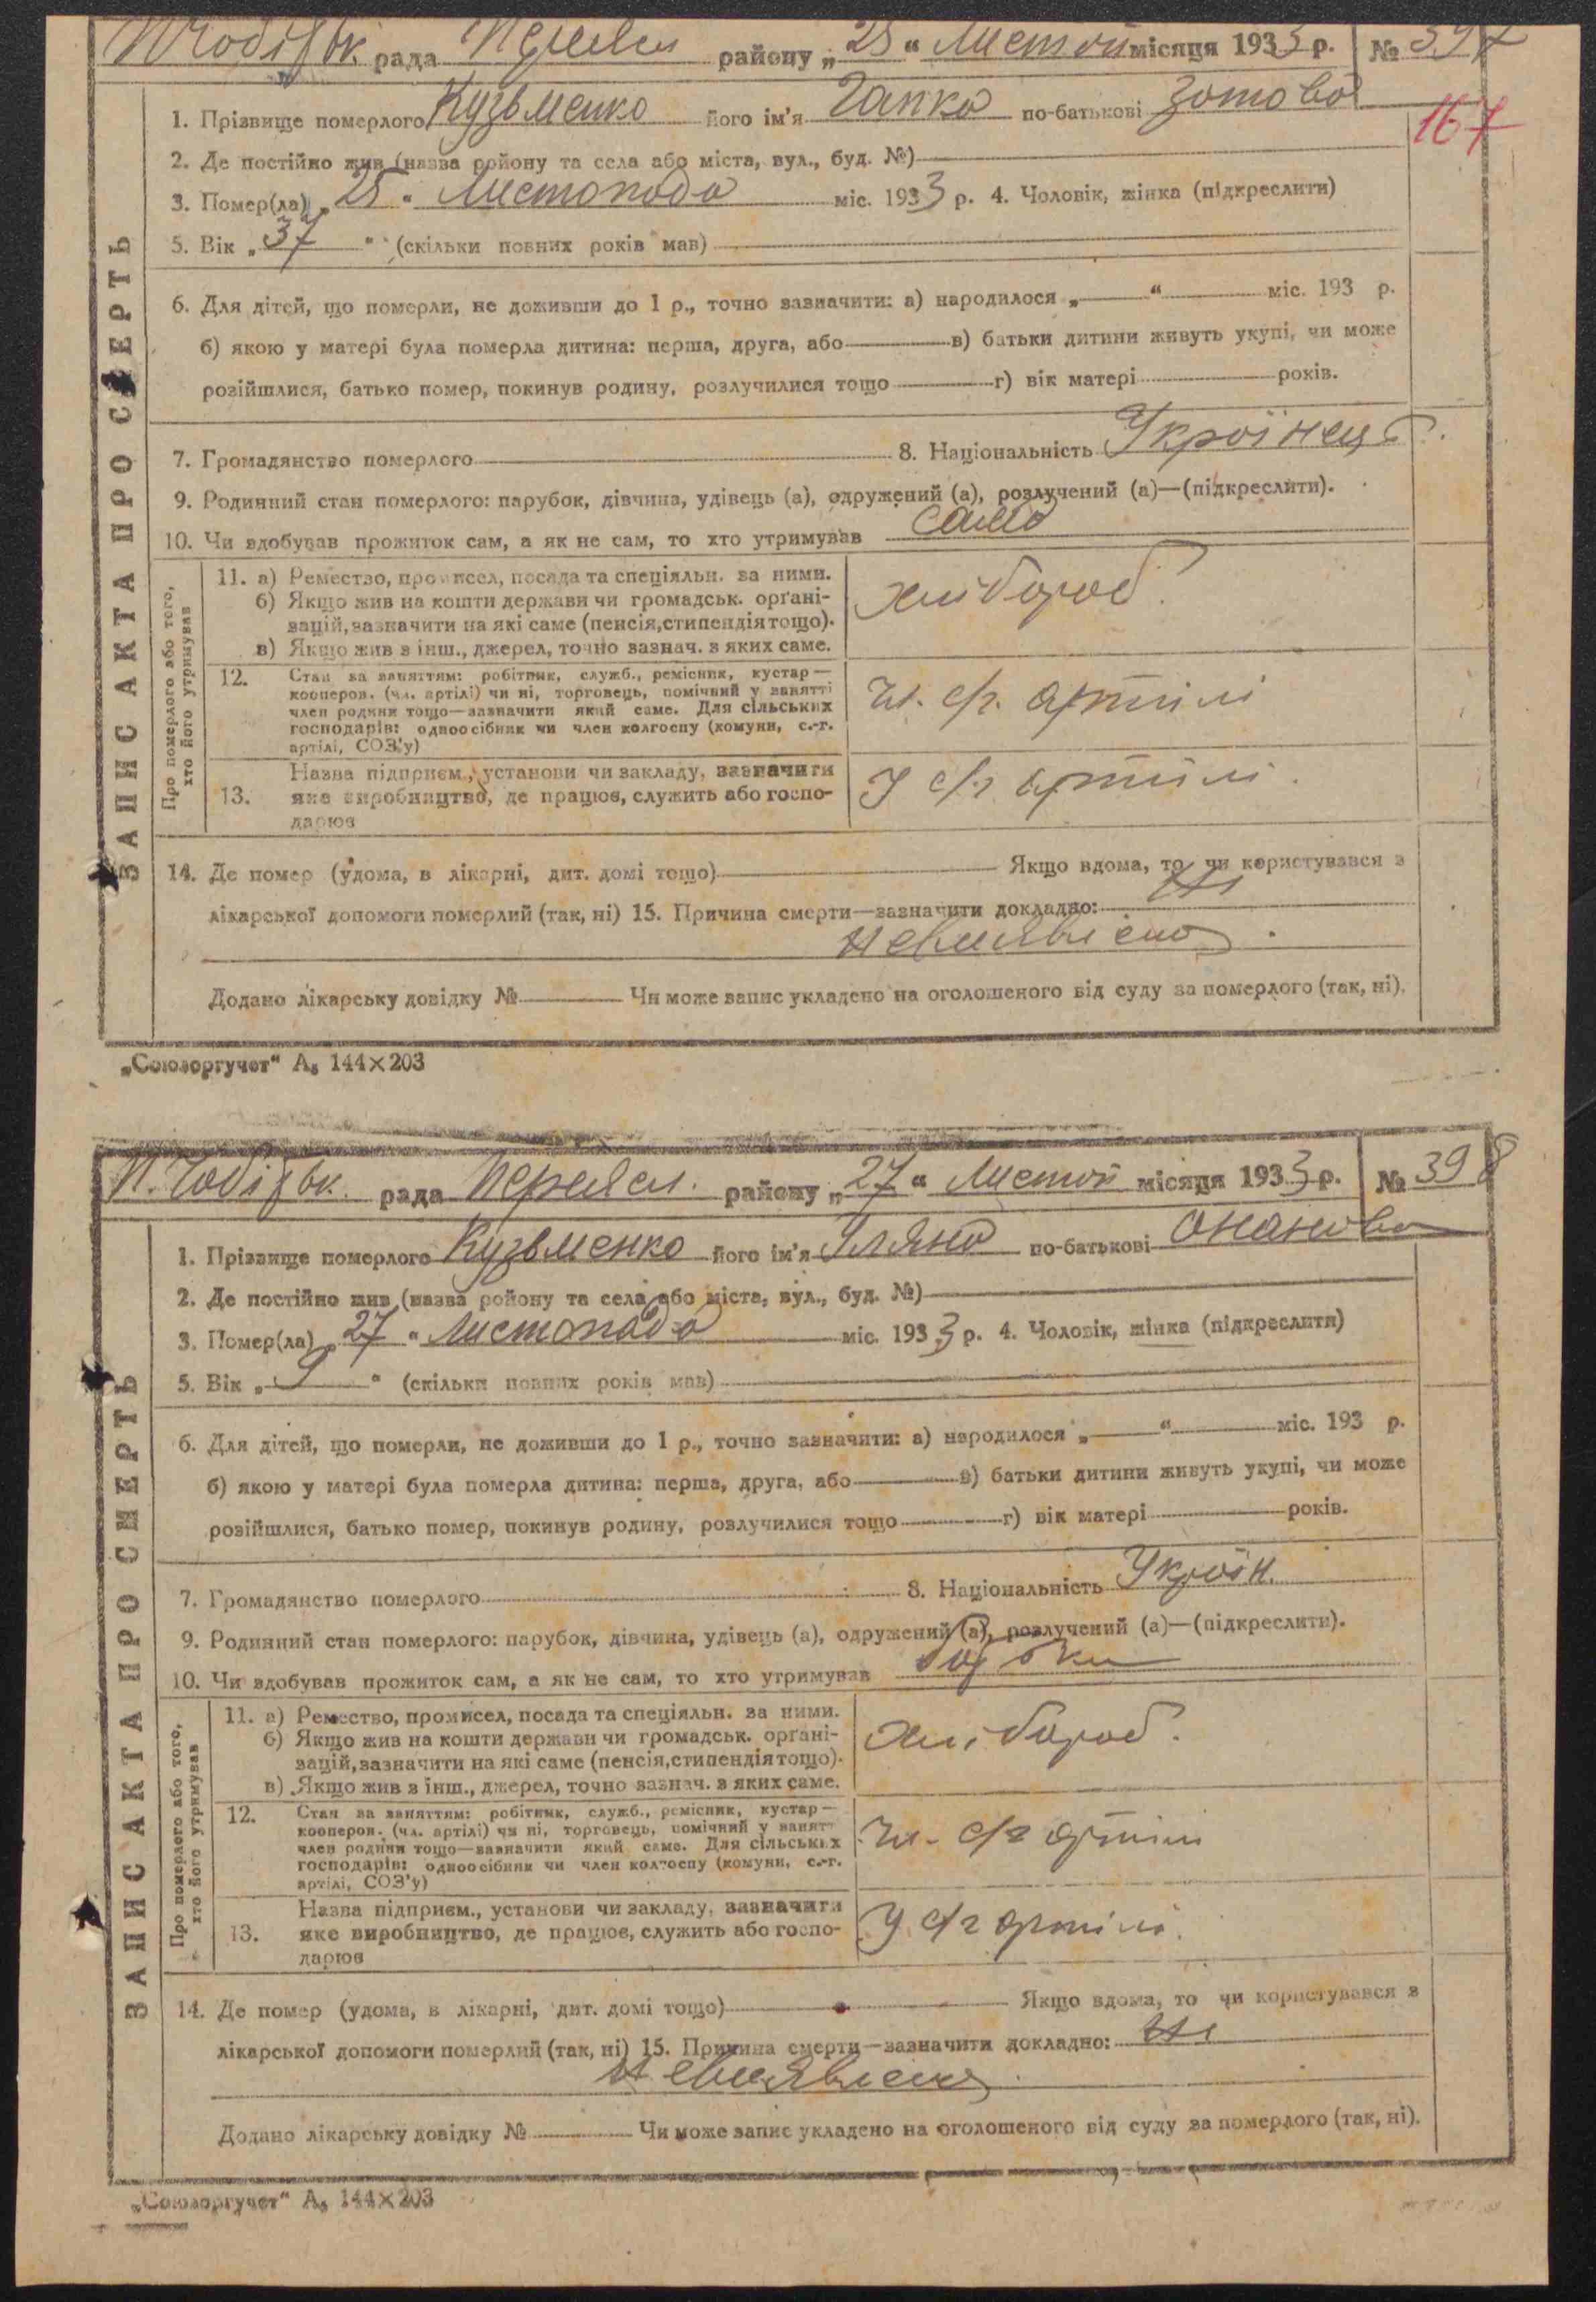 рада Переясл. району „25“ Листоп місяця 1933 р. № 397
167
1. Прізвище померлого Кузьменко його ім'я Гапка по-батькові Зотова
2. Де постійно жив (назва району та села або міста, вул., буд. №)
3. Помер(ла) „25“ Листопада міс. 1933 р. 4. Чоловік, жінка (підкреслити)
5. Вік „37“ (скільки повних років мав)
6. Для дітей, що померли, не доживши до 1 р., точно зазначити: а) народилося „ “ міс. 193 р.
б) якою у матері була померла дитина: перша, друга, або в) батьки дитини живуть укупі, чи може
розійшлися, батько помер, покинув родину, розлучилися тощо г) вік матері років.
7. Громадянство померлого 8. Національність Українец
9. Родинний стан померлого: парубок, дівчина, удівець (а), одружений (а), розлучений (а)—(підкреслити).
10. Чи здобував прожиток сам, а як не сам, то хто утримував сама
ЗАПИС АКТА ПРО СМЕРТЬ
Про померлого або того, хто його утримував
11. а) Ремество, промисел, посада та спеціяльн. за ними.
б) Якщо жив на кошти держави чи громадськ. орґані-
зацій, зазначити на які саме (пенсія, стипендія тощо).
в) Якщо жив з інш., джерел, точно зазнач. з яких саме.
хлібороб.
12. Стан за заняттям: робітник, служб., ремісник, кустар—
кооперов. (чл. артілі) чи ні, торговець, помічний у занятті
член родини тощо—зазначити який саме. Для сільських
господарів: одноосібник чи член колгоспу (комуни, с.-г.
артілі, СОЗ'у)
Чл. с/г. артілі
13. Назва підприєм., установи чи закладу, зазначити
яке виробництво, де працює, служить або госпо-
дарює
У с/г артілі.
14. Де помер (удома, в лікарні, дит. домі тощо) Якщо вдома, то чи користувався з
лікарської допомоги померлий (так, ні) 15. Причина смерти—зазначити докладно: Ні
невиявлено.
Додано лікарську довідку № Чи може запис укладено на оголошеного від суду за померлого (так, ні).
„Союзоргучет“ А₅ 144×203
рада Переясл. району „27“ Листоп місяця 1933 р. № 398
1. Прізвище померлого Кузьменко його ім'я Уляна по-батькові Онанова
2. Де постійно жив (назва району та села або міста, вул., буд. №)
3. Помер(ла) „27“ Листопада міс. 1933 р. 4. Чоловік, жінка (підкреслити)
5. Вік „9“ (скільки повних років мав)
6. Для дітей, що померли, не доживши до 1 р., точно зазначити: а) народилося „ “ міс. 193 р.
б) якою у матері була померла дитина: перша, друга, або в) батьки дитини живуть укупі, чи може
розійшлися, батько помер, покинув родину, розлучилися тощо г) вік матері років.
7. Громадянство померлого 8. Національність Україн.
9. Родинний стан померлого: парубок, дівчина, удівець (а), одружений (а), розлучений (а)—(підкреслити).
10. Чи здобував прожиток сам, а як не сам, то хто утримував батьки
ЗАПИС АКТА ПРО СМЕРТЬ
Про померлого або того, хто його утримував
11. а) Ремество, промисел, посада та спеціяльн. за ними.
б) Якщо жив на кошти держави чи громадськ. орґані-
зацій, зазначити на які саме (пенсія, стипендія тощо).
в) Якщо жив з інш., джерел, точно зазнач. з яких саме.
хлібороб.
12. Стан за заняттям: робітник, служб., ремісник, кустар—
кооперов. (чл. артілі) чи ні, торговець, помічний у занятт
член родини тощо—зазначити який саме. Для сільських
господарів: одноосібник чи член колгоспу (комуни, с.-г.
артілі, СОЗ'у)
Чл. с/г артілі
13. Назва підприєм., установи чи закладу, зазначити
яке виробництво, де працює, служить або госпо-
дарює
У с/г артілі.
14. Де помер (удома, в лікарні, дит. домі тощо) Якщо вдома, то чи користувався з
лікарської допомоги померлий (так, ні) 15. Причина смерти—зазначити докладно: Ні
невиявлено.
Додано лікарську довідку № Чи може запис укладено на оголошеного від суду за померлого (так, ні).
„Союзоргучет“ А₅ 144×203